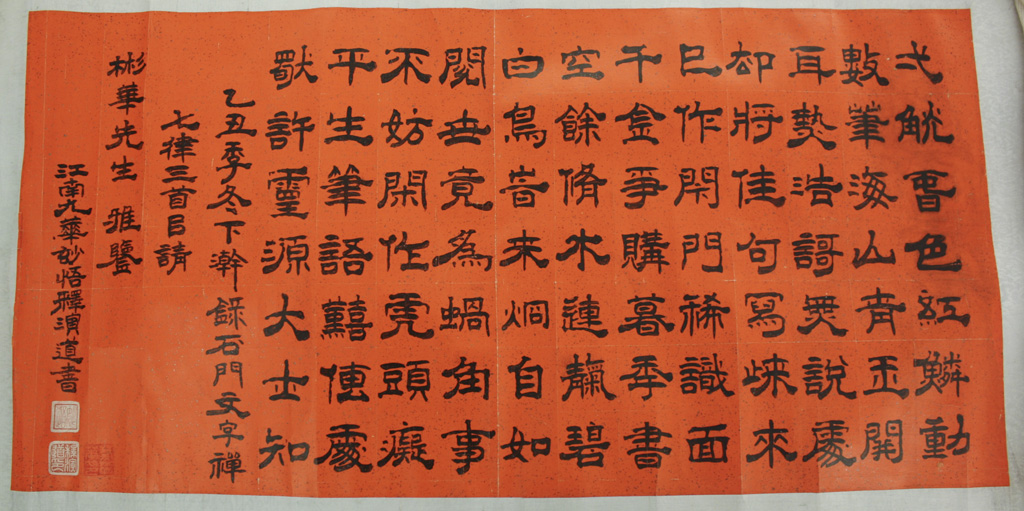 弌觥旾色紅鱗動
數筆海山青玉開
耳熱浩謌無說處
却將佳句寫歸來
已作閑門稀識面
千金爭購暮年書
空餘脩水連靝碧
白鳥旹來炯自如
閱世竟為蝸角事
不妨閑作虎頭癡
平生筆語囏傳處
獨許靈源大士知
乙丑季冬下澣錄石門文字禪
七律三首㠯請
彬華先生 雅鑒
江南九華妙悟釋渭道書